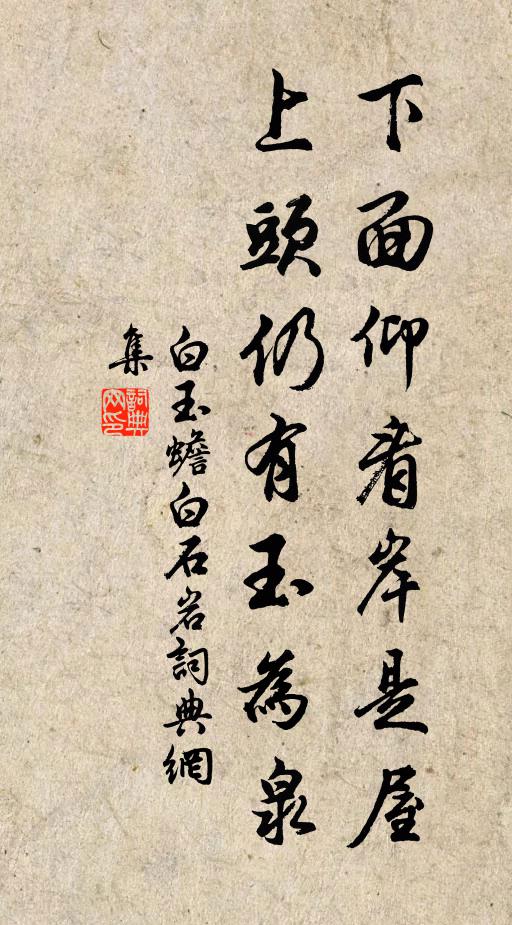 下面仰看岸是屋
上頭仍有玉為泉
白玉蟾白石岩詞典網
集
詞典網印